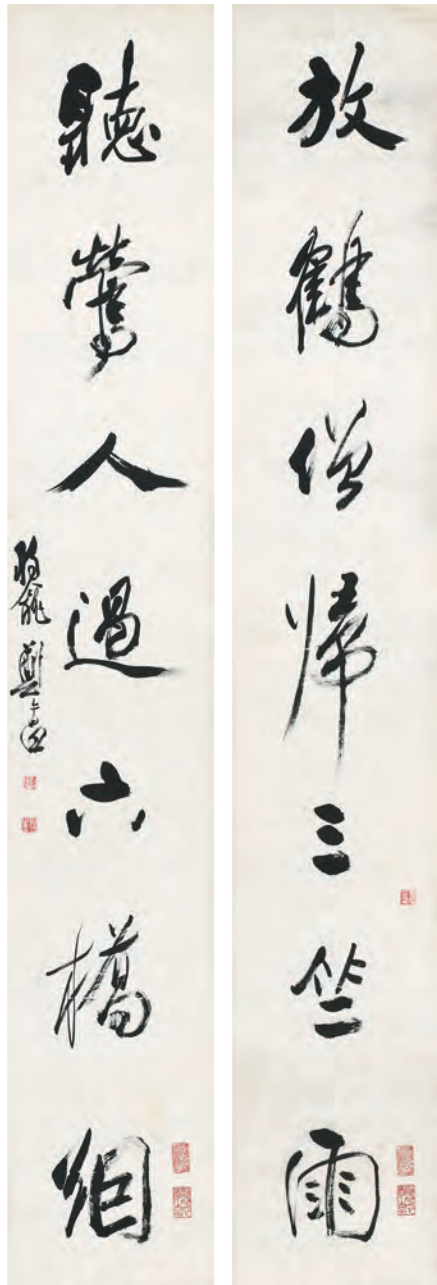 放鶴僧歸三竺雨
聽鶯人過六橋烟
弱龕鄭午昌